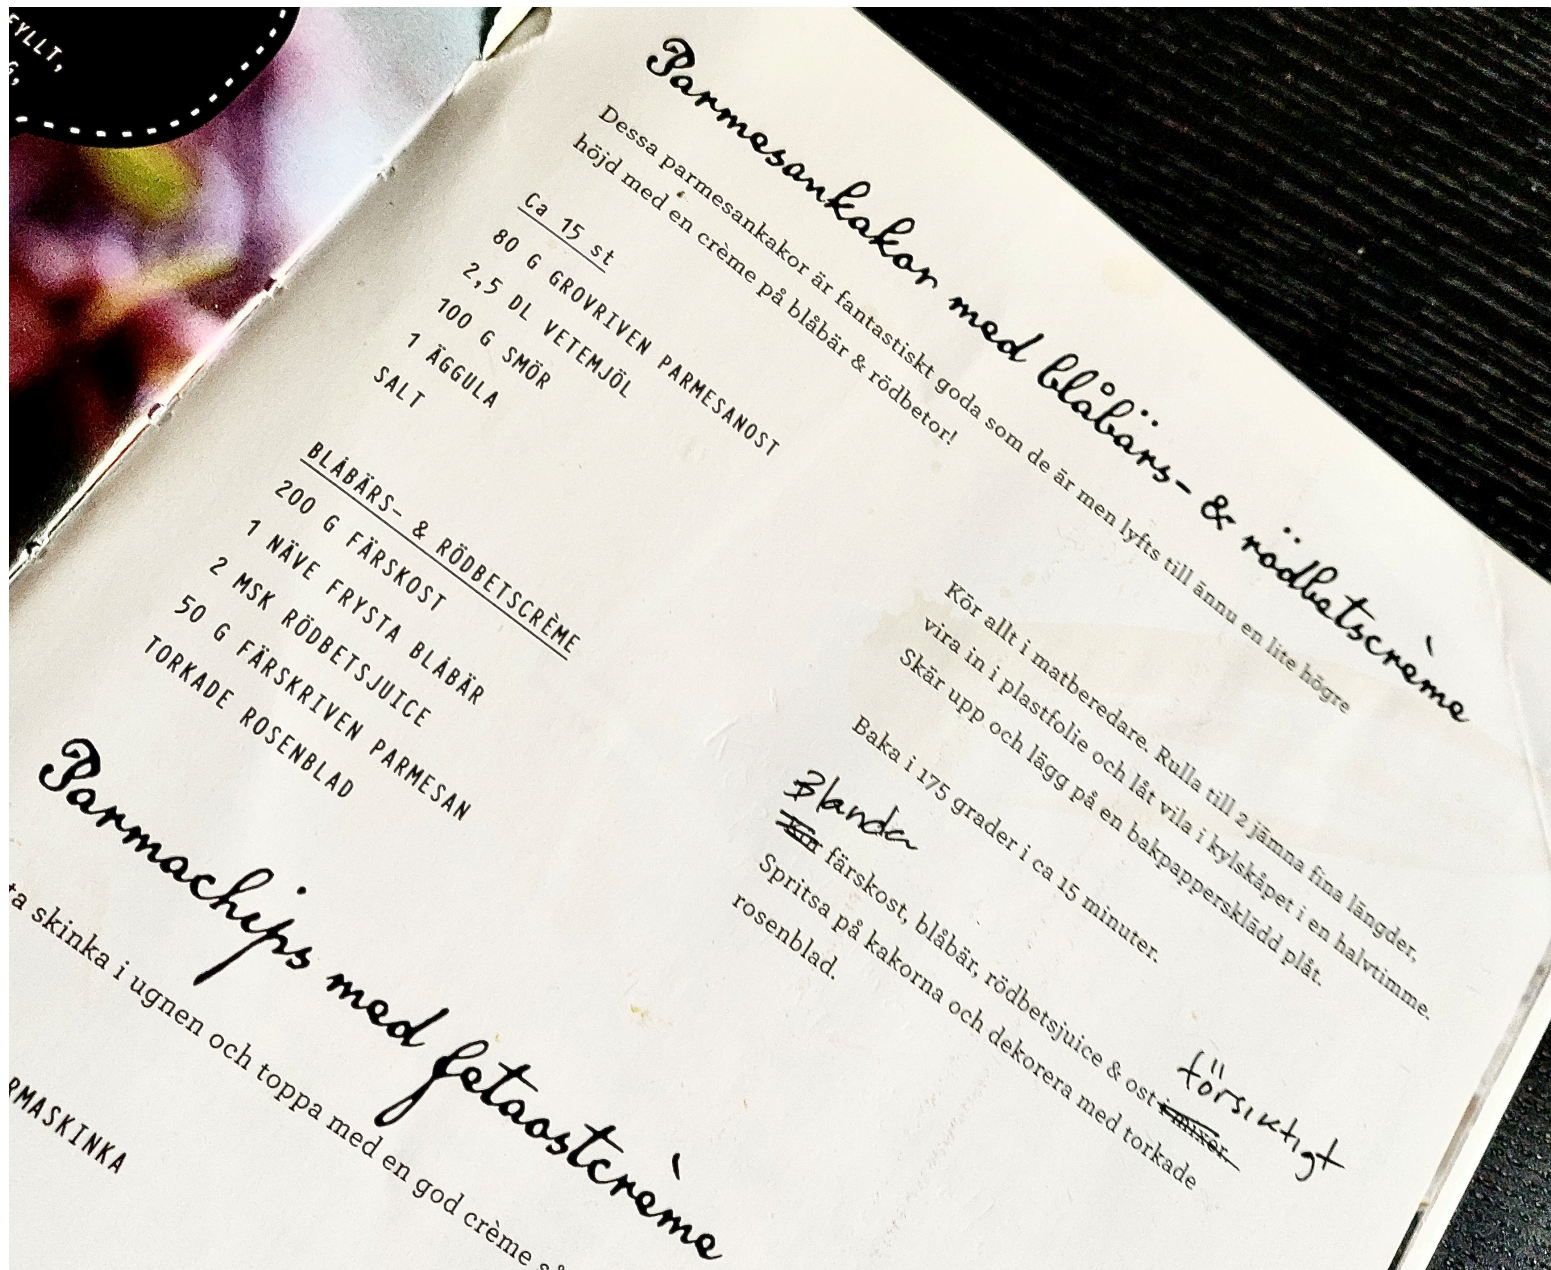 FYLLT,
Parmesankakor med blåbärs- & rödbetscrème
Dessa parmesankakor är fantastiskt goda som de är men lyfts till ännu en lite högre
höjd med en crème på blåbär & rödbetor!
Ca 15 st
80 G GROVRIVEN PARMESANOST
2,5 DL VETEMJÖL
100 G SMÖR
1 ÄGGULA
SALT
BLÅBÄRS- & RÖDBETSCRÈME
200 G FÄRSKOST
1 NÄVE FRYSTA BLÅBÄR
2 MSK RÖDBETSJUICE
50 G FÄRSKRIVEN PARMESAN
TORKADE ROSENBLAD
Kör allt i matberedare. Rulla till 2 jämna fina längder,
vira in i plastfolie och låt vila i kylskåpet i en halvtimme.
Skär upp och lägg på en bakpappersklädd plåt.
Baka i 175 grader i ca 15 minuter.
Blanda
Kör färskost, blåbär, rödbetsjuice & ost i mixer.
försiktigt
Spritsa på kakorna och dekorera med torkade
rosenblad.
Parmachips med fetaostcrème
ta skinka i ugnen och toppa med en god crème så
RMASKINKA